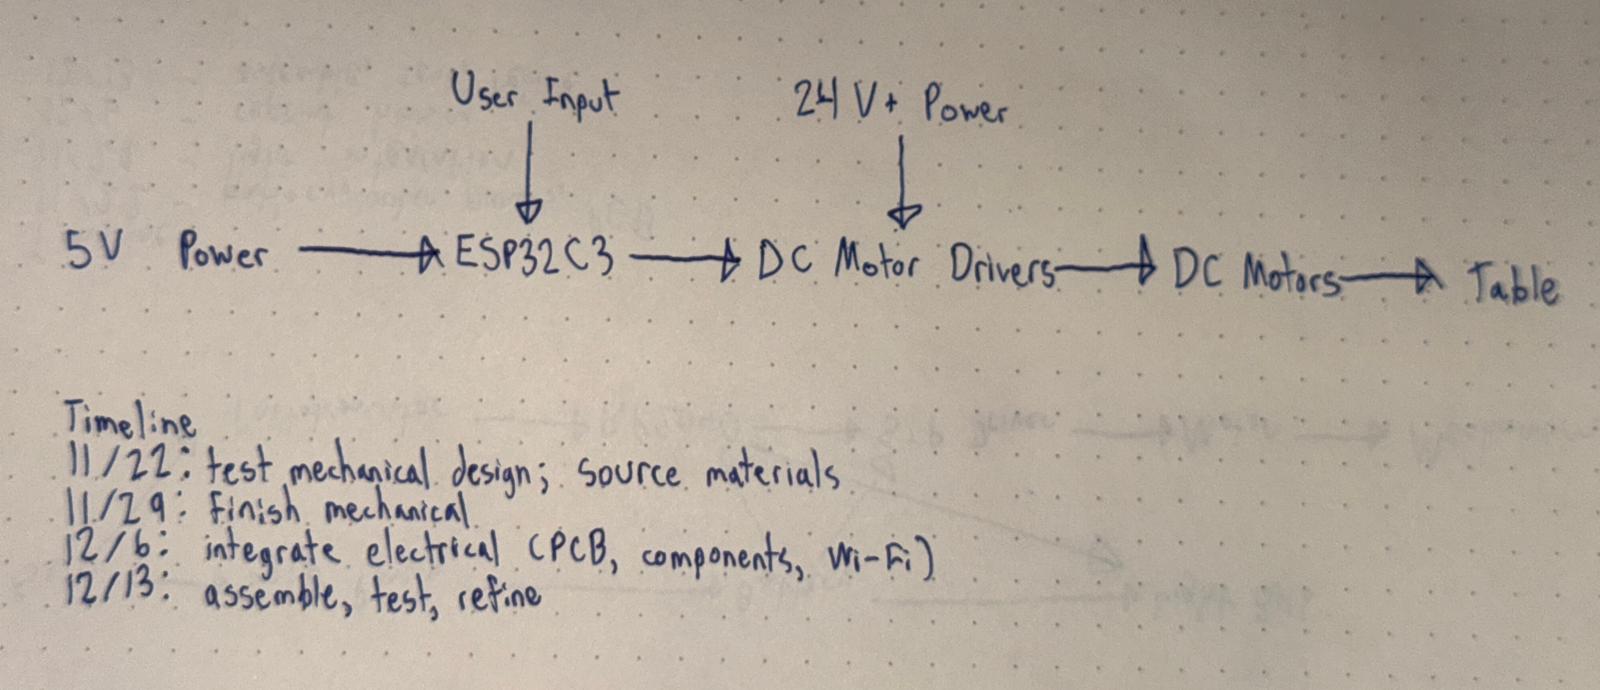 User Input
24 V+ Power
5V Power
ESP32C3
DC Motor Drivers
DC Motors
Table
Timeline
11/22: test mechanical design; source materials
11/29: finish mechanical
12/6: integrate electrical (PCB, components, Wi-Fi)
12/13: assemble, test, refine